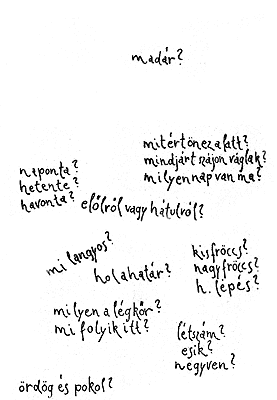 madár?
mit értönez alatt?
mindjárt szájon váglak?
milyen nap van ma?
naponta?
hetente?
havonta?
előlről vagy hátulról?
mi langyos?
hol a határ?
kisfröccs?
nagyfröccs?
h. lépés?
milyen a légkör?
mi folyik itt?
létszám?
esik?
negyven?
ördög és pokol?